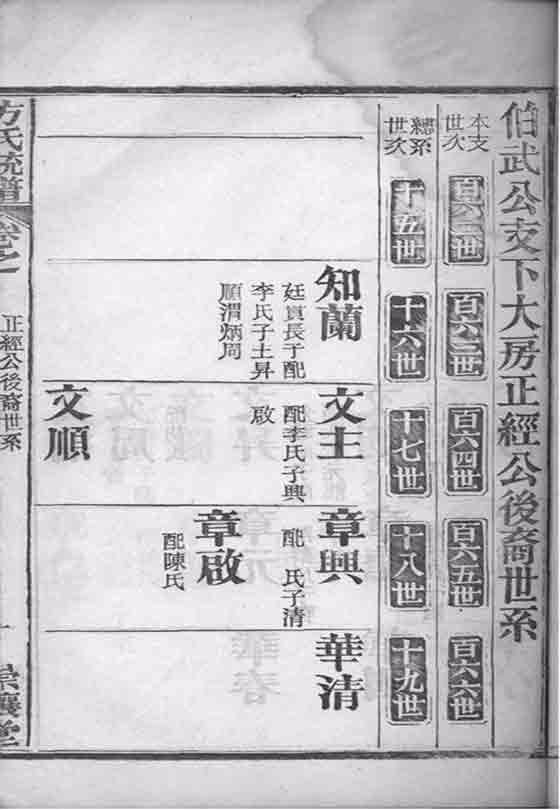 伯武公支下大房正經公後裔世系
本支世次
百六二世
百六三世
百六四世
百六五世
百六六世
總系世次
十五世
十六世
十七世
十八世
十九世
知蘭
廷貢長子配
李氏子主昇
順渭炳周
文主
配李氏子興
啟
文順
章興
配 氏子清
章啟
配陳氏
華清
方氏統譜
卷之一
正經公後裔世系
一